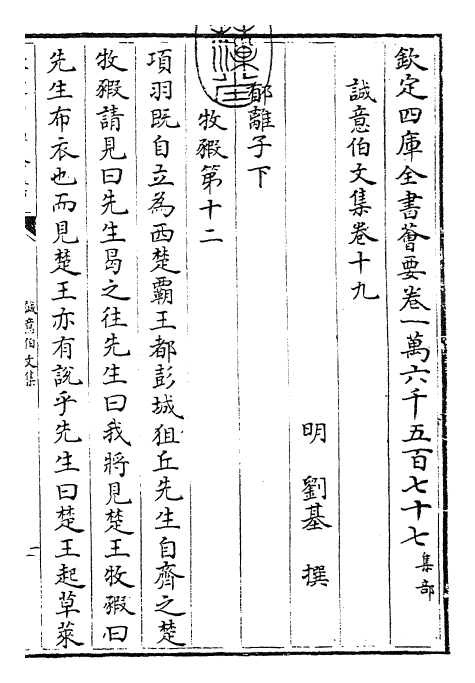 欽定四庫全書薈要卷一萬六千五百七十七集部
誠意伯文集卷十九
明 劉基 撰
郁離子下
牧豭第十二
項羽既自立為西楚霸王都彭城狙丘先生自齊之楚
牧豭請見曰先生曷之往先生曰我將見楚王牧豭曰
先生布衣也而見楚王亦有說乎先生曰楚王起草萊
誠意伯文集
一